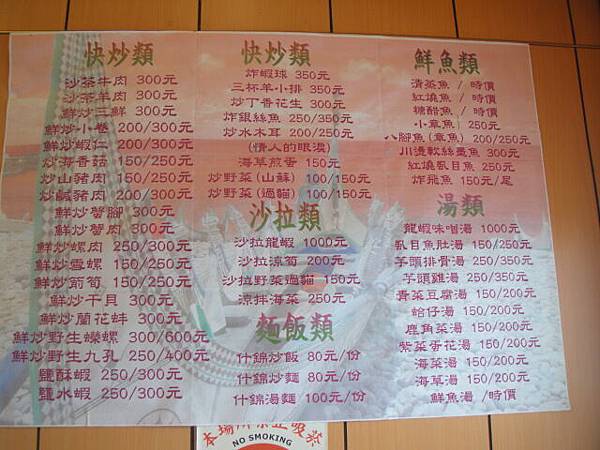 快炒類
沙茶牛肉 300元
沙茶羊肉 300元
鮮炒三鮮 300元
鮮炒小卷 200/300元
鮮炒蝦仁 200/300元
炒海香菇 150/250元
炒山豬肉 150/250元
炒鹹豬肉 200/300元
鮮炒蟹腳 300元
鮮炒蟹肉 300元
鮮炒螺肉 250/300元
鮮炒雪螺 150/250元
鮮炒箭筍 150/250元
鮮炒干貝 300元
鮮炒蘭花蚌 300元
鮮炒野生蠑螺 300/600元
鮮炒野生九孔 250/400元
鹽酥蝦 250/300元
鹽水蝦 250/300元
快炒類
炸蝦球 350元
三杯羊小排 350元
炒丁香花生 300元
炸銀絲魚 250/350元
炒水木耳 200/250元
(情人的眼淚)
海草煎蛋 150元
炒野菜(山蘇) 100/150元
炒野菜(過貓) 100/150元
沙拉類
沙拉龍蝦 1000元
沙拉涼筍 200元
沙拉野菜過貓 150元
涼拌海菜 250元
麵飯類
什錦炒飯 80元/份
什錦炒麵 80元/份
什錦湯麵 100元/份
鮮魚類
清蒸魚 / 時價
紅燒魚 / 時價
糖醋魚 / 時價
小章魚 250元
八腳魚(章魚) 200/250元
川燙軟絲墨魚 300元
紅燒虱目魚 250元
炸飛魚 150元/尾
湯類
龍蝦味噌湯 1000元
虱目魚肚湯 250元
芋頭排骨湯 250/350元
芋頭雞湯 250/350元
青菜豆腐湯 150/200元
蛤仔湯 150/200元
鹿角菜湯 150/200元
紫菜蛋花湯 150/200元
海菜湯 150/200元
海草湯 150/200元
鮮魚湯 /時價
本場所禁止吸菸
NO SMOKING